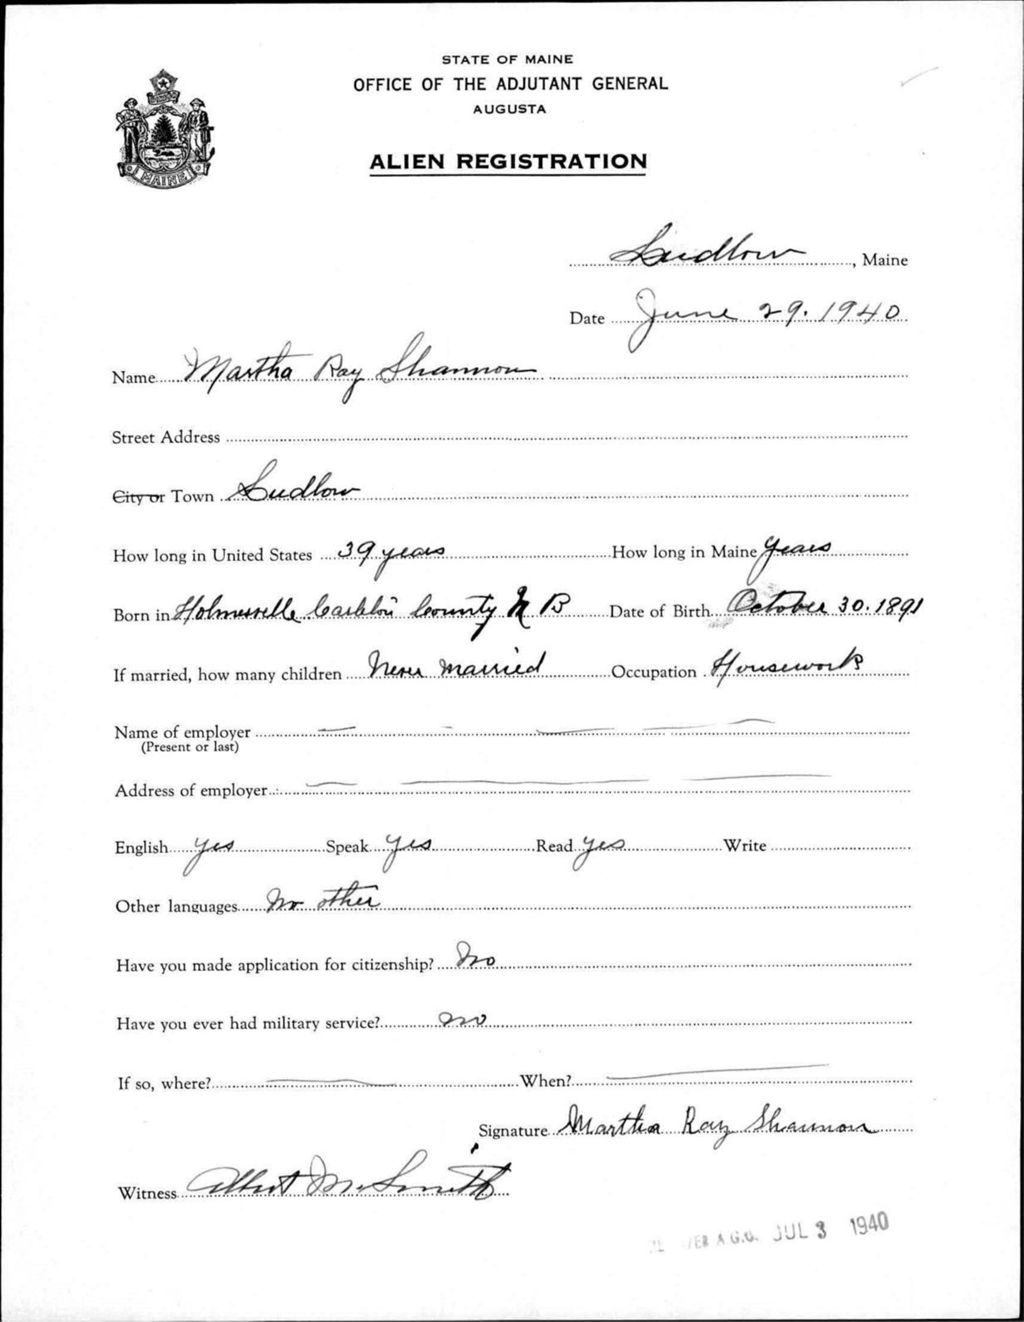 STATE OF MAINE
OFFICE OF THE ADJUTANT GENERAL
AUGUSTA
ALIEN REGISTRATION
MAINE
Ludlow, Maine
Date June 29. 1940
Name Martha Ray Shannon
Street Address
City or Town Ludlow
How long in United States 39 years How long in Maine years
Born in Holmesville Carleton County N B Date of Birth October 30. 1891
If married, how many children Never married Occupation Housework
Name of employer
(Present or last)
Address of employer
English yes Speak yes Read yes Write
Other languages No other
Have you made application for citizenship? No
Have you ever had military service? no
If so, where? When?
Signature Martha Ray Shannon
Witness Albert M. Smith
A.G.O. JUL 3 1940